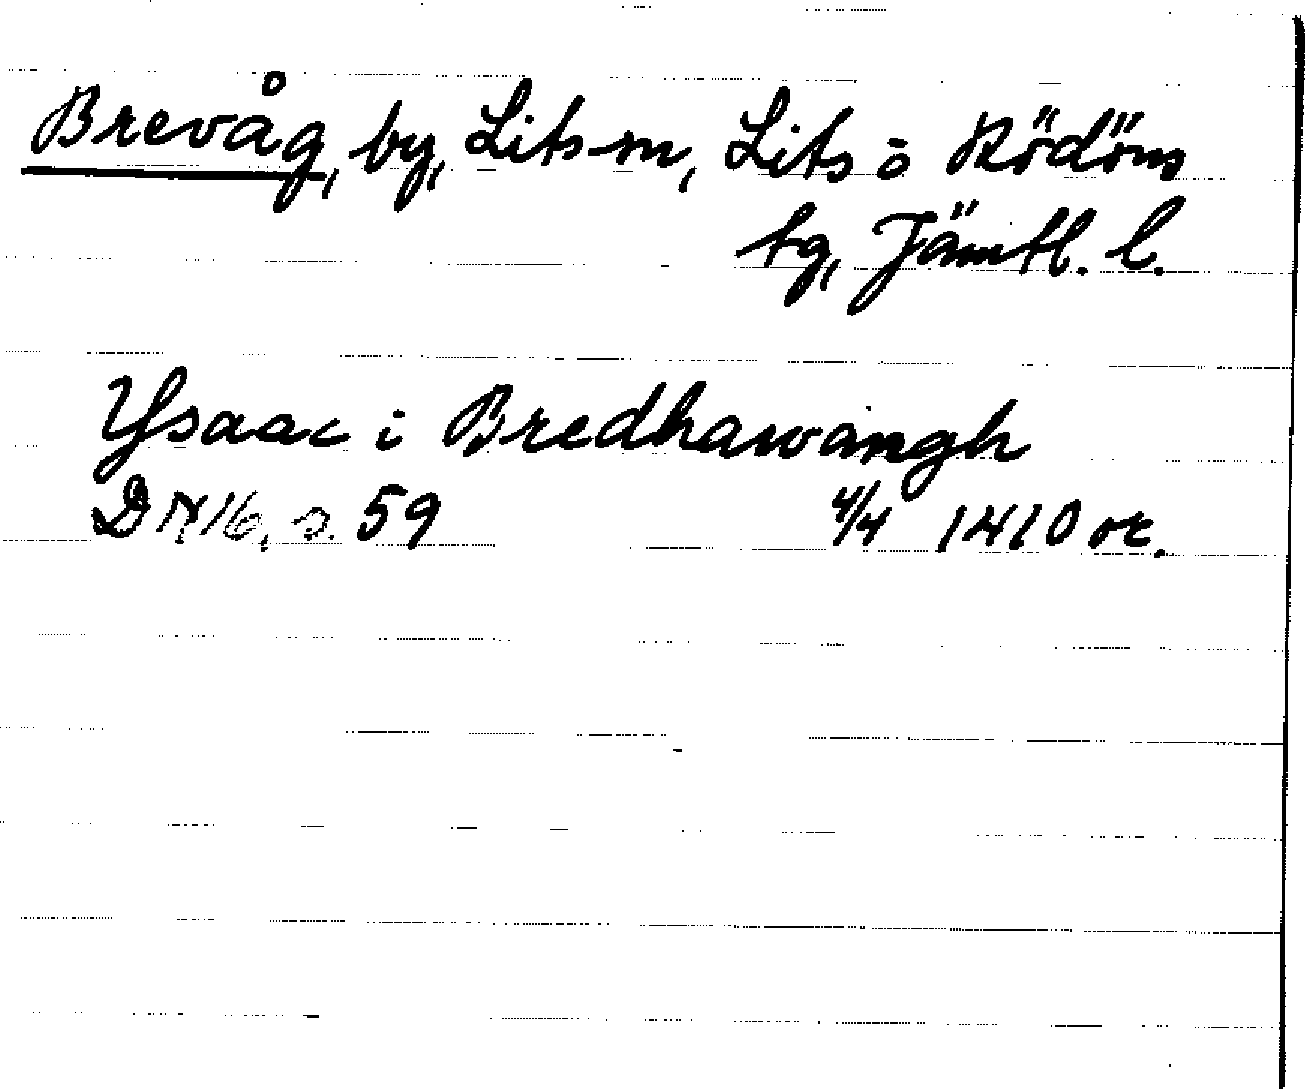 Brevåg, by, Lits sn, Lits o Rödöns
tg, Jämtl. l.
Ysaac i Bredhawangh
DN 16, s. 59 4/4 1410 or.